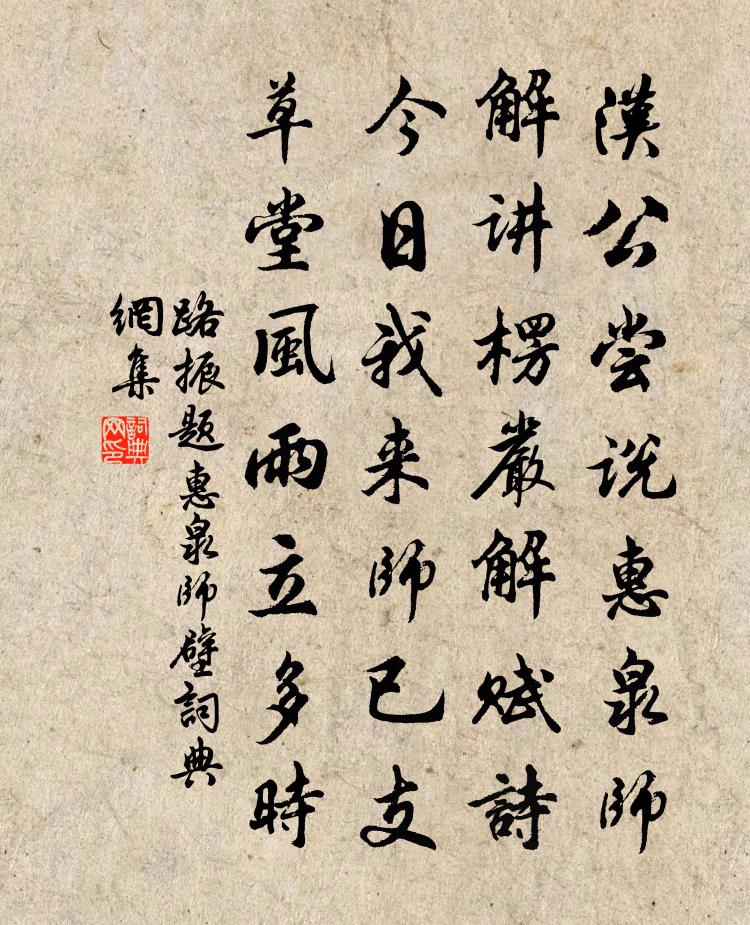 漢公尝说惠泉師
解讲楞嚴解赋詩
今日我来師已支
草堂風雨立多時
路振题惠泉師壁詞典
網集
詞典
网印